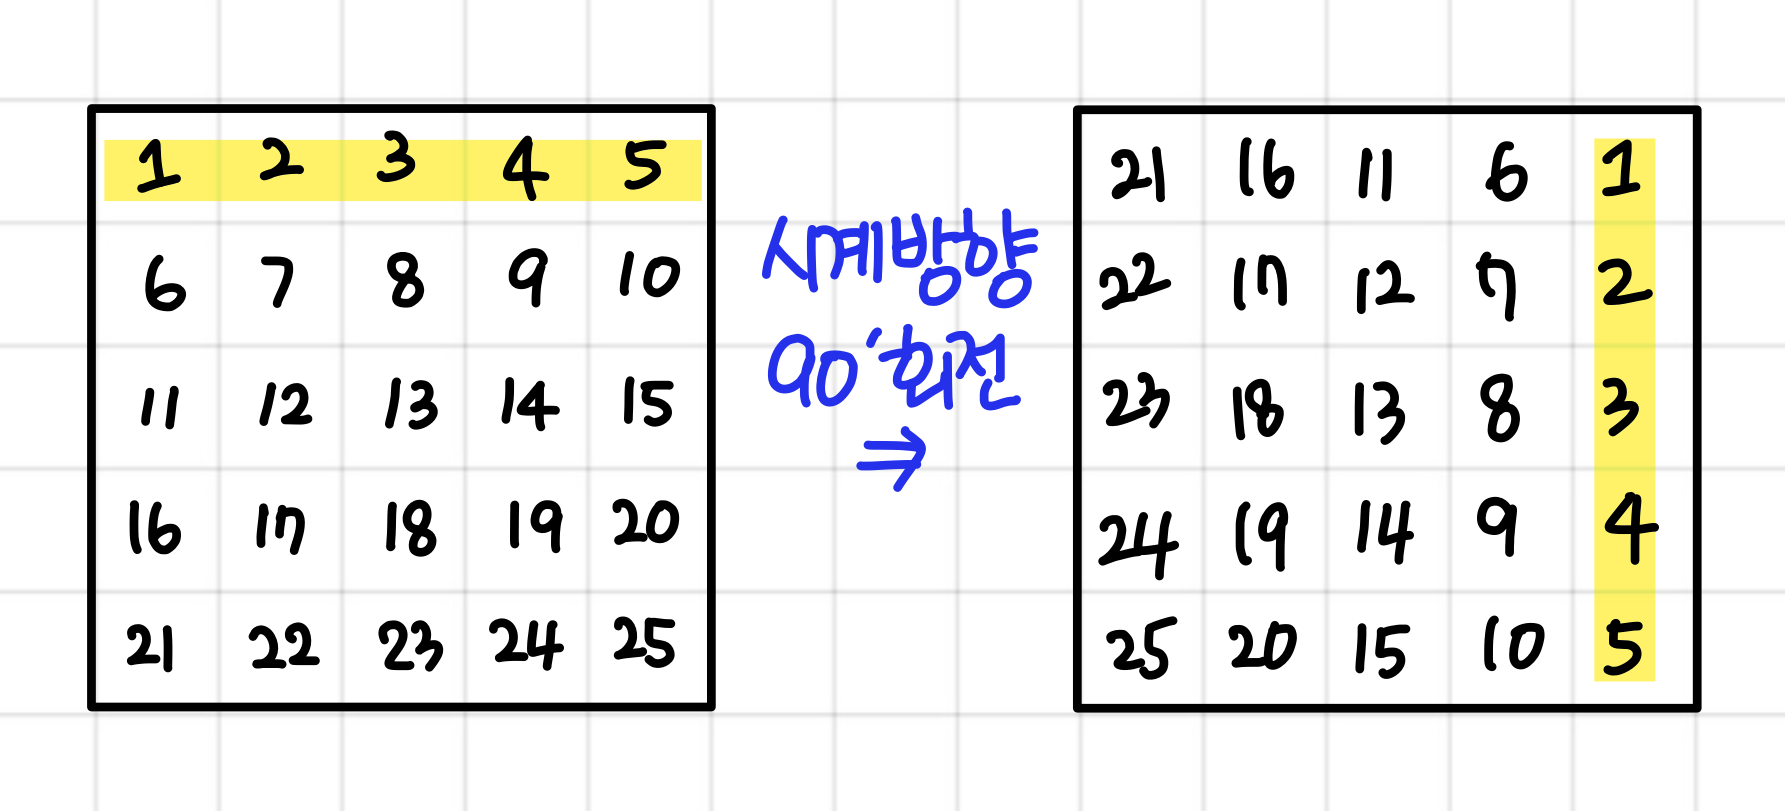 1 2 3 4 5
6 7 8 9 10
11 12 13 14 15
16 17 18 19 20
21 22 23 24 25
시계방향
90°회전
⇒
21 16 11 6 1
22 17 12 7 2
23 18 13 8 3
24 19 14 9 4
25 20 15 10 5